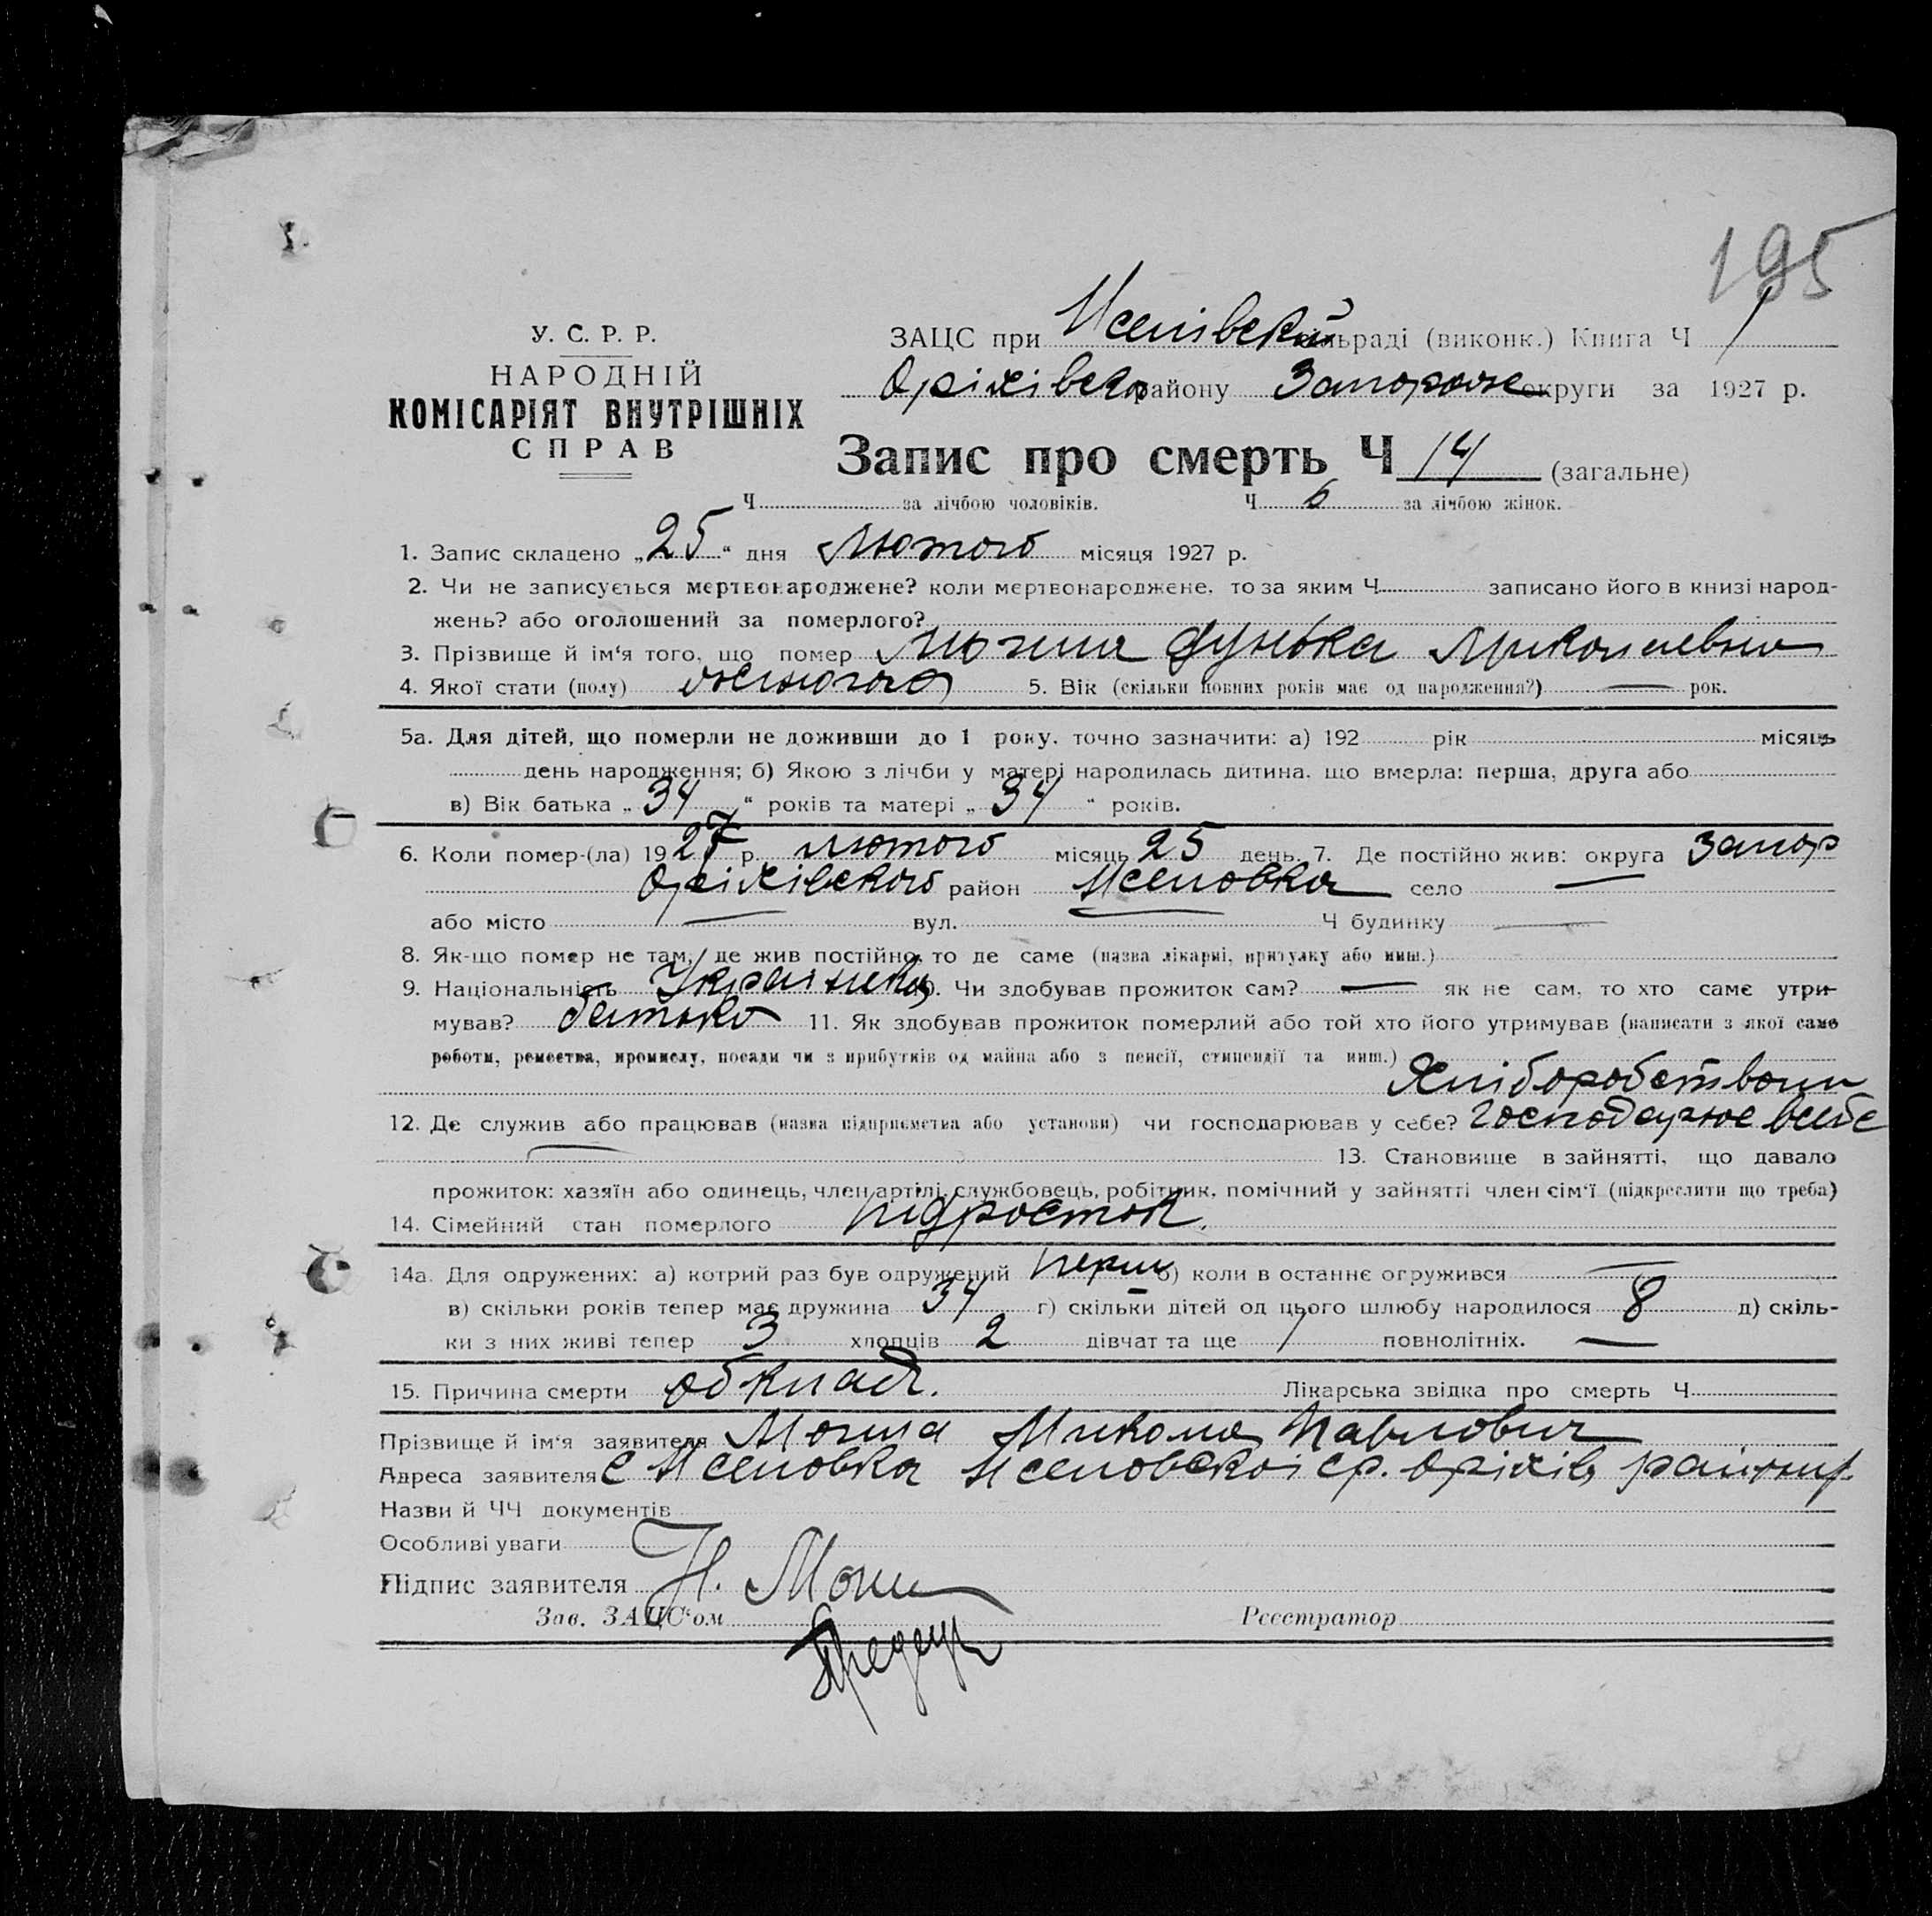 195
У. С. Р. Р.
НАРОДНІЙ
КОМІСАРІЯТ ВНУТРІШНІХ
СПРАВ
ЗАЦС при сільраді (виконк.) Книга Ч 1
Оріхівськ району Запорож округи за 1927 р.
Запис про смерть Ч 14 (загальне)
Ч за лічбою чоловіків. Ч 6 за лічбою жінок.
1. Запис складено „25“ дня Лютого місяця 1927 р.
2. Чи не записується мертвонароджене? коли мертвонароджене, то за яким Ч записано його в книзі народ-
жень? або оголошений за померлого?
3. Прізвище й ім'я того, що помер Дунька Миколаевна
4. Якої статі (полу) 5. Вік (скільки повних років має од народження?) — рок.
5а. Для дітей, що померли не доживши до 1 року, точно зазначити: а) 192 рік місяць
день народження; б) Якою з лічби у матері народилась дитина, що вмерла: перша, друга або
в) Вік батька „34“ років та матері „34“ років.
6. Коли помер-(ла) 1927 р. лютого місяць 25 день. 7. Де постійно жив: округа Запор
Оріхівського район село —
або місто — вул. — Ч будинку —
8. Як-що помер не там, де жив постійно, то де саме (назва лікарні, притулку або инш.)
9. Національність Українка 10. Чи здобував прожиток сам? — як не сам, то хто саме утри-
мував? батько 11. Як здобував прожиток померлий або той хто його утримував (написати з якої саме
роботи, ремества, промислу, посади чи з прибутків од майна або з пенсії, стипендії та инш.)
Хліборобством
12. Де служив або працював (назва підприємства або установи) чи господарював у себе? Господарює
— 13. Становище в зайнятті, що давало
прожиток: хазяїн або одинець, член артілі, службовець, робітник, помічний у зайнятті член сім'ї (підкреслити що треба)
14. Сімейний стан померлого підросток.
14а. Для одружених: а) котрий раз був одружений перш б) коли в останнє одружився —
в) скільки років тепер має дружина 34 г) скільки дітей од цього шлюбу народилося 8 д) скіль-
ки з них живі тепер 3 хлопців 2 дівчат та ще 1 повнолітніх. —
15. Причина смерти обклад. Лікарська звідка про смерть Ч
Прізвище й ім'я заявителя Могила Микола Павлович
Адреса заявителя с ср. Оріхів району
Назви й ЧЧ документів
Особливі уваги
Підпис заявителя Н.
Зав. ЗАЦС'ом Реєстратор